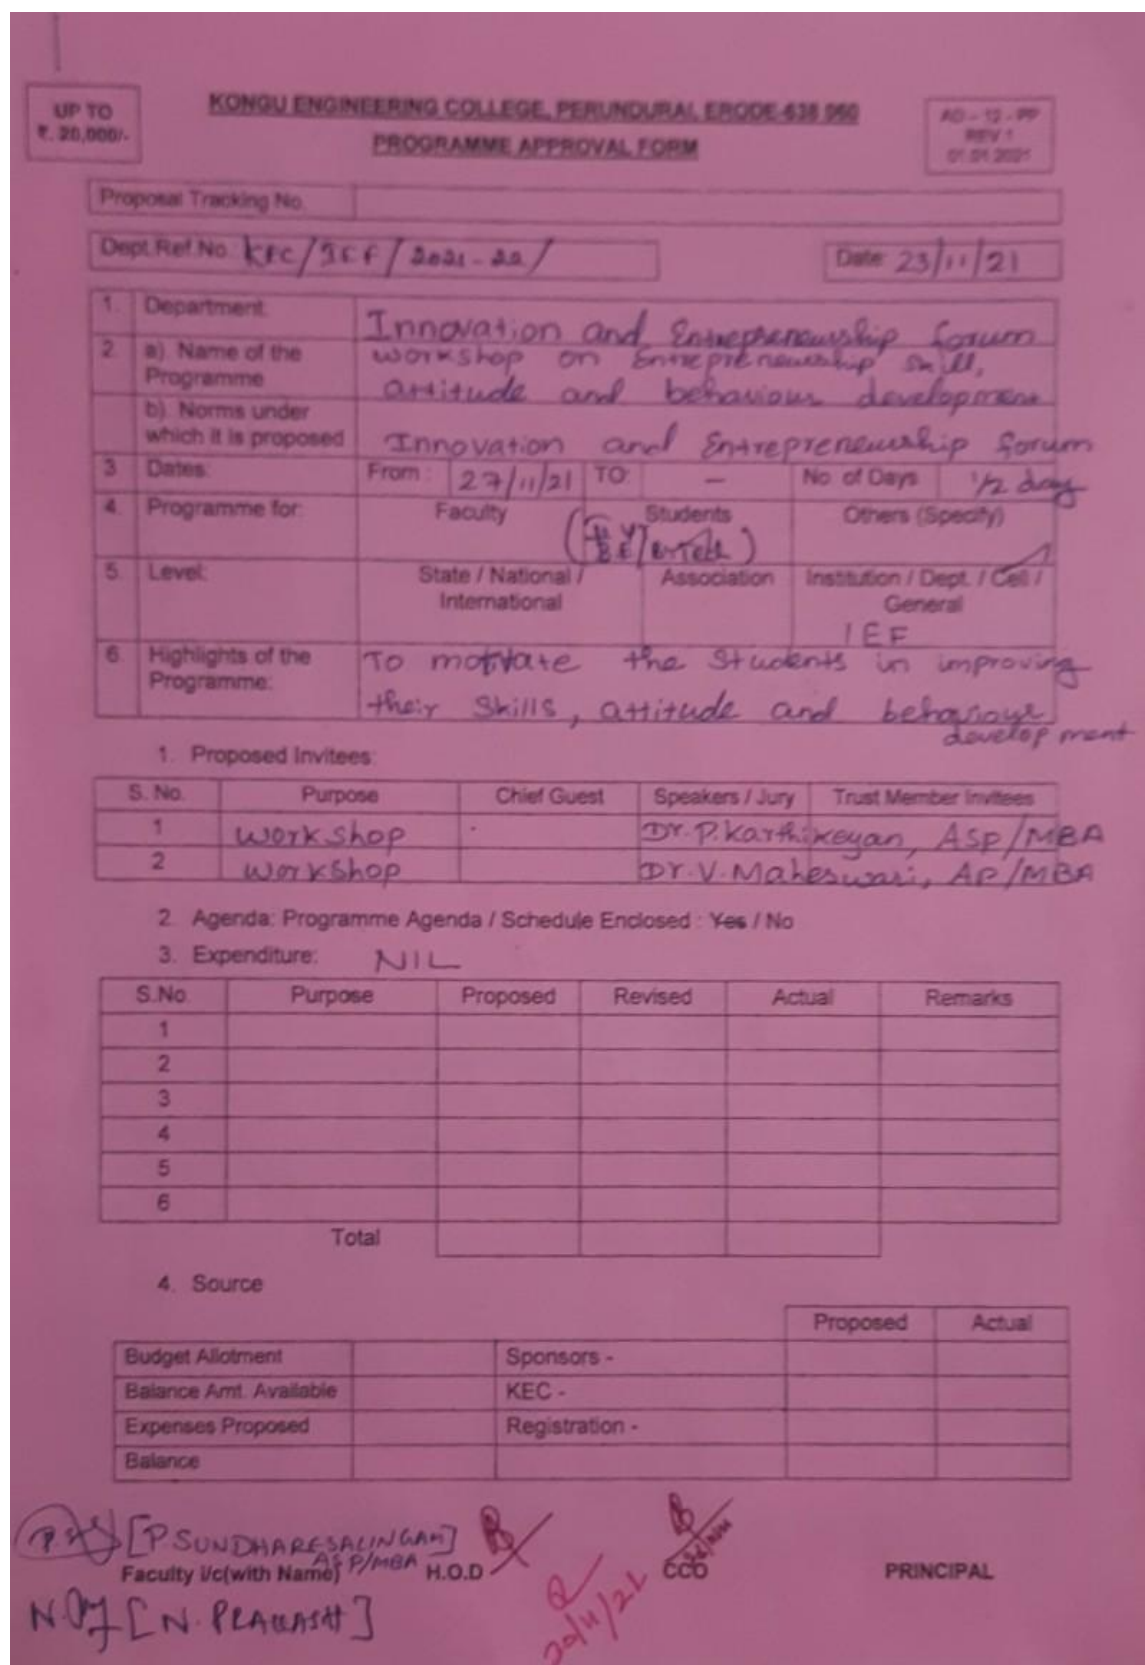 UP TO
₹. 20,000/-
KONGU ENGINEERING COLLEGE, PERUNDURAI, ERODE-638 060
PROGRAMME APPROVAL FORM
AD - 12 - PP
REV 1
01.01.2021
Proposal Tracking No.
Dept.Ref.No. KEC/IEF/2021-22/ Date: 23/11/21
1. Department: Innovation and Entrepreneurship forum
2. a). Name of the Programme workshop on Entrepreneurship skill,
attitude and behaviour development
b). Norms under which it is proposed Innovation and Entrepreneurship forum
3. Dates: From : 27/11/21 TO: - No. of Days 1/2 day
4. Programme for: Faculty Students Others (Specify)
BE/B.Tech )
5. Level: State / National / International Association Institution / Dept. / Cell / General
IEF
6. Highlights of the Programme: To motivate the Students in improving
their Skills, attitude and behaviour
development
1. Proposed Invitees:
S. No. Purpose Chief Guest Speakers / Jury Trust Member Invitees
1 Workshop Dr. P. Karthikeyan, ASP/MBA
2 Workshop Dr. V. Maheswari, AP/MBA
2. Agenda: Programme Agenda / Schedule Enclosed : Yes / No
3. Expenditure: NIL
S.No. Purpose Proposed Revised Actual Remarks
1
2
3
4
5
6
Total
4. Source
Proposed Actual
Budget Allotment Sponsors -
Balance Amt. Available KEC -
Expenses Proposed Registration -
Balance
[P SUNDHARESALINGAM]
ASP/MBA
Faculty i/c(with Name) H.O.D CCO PRINCIPAL
[N. PRAKASH]
20/11/21